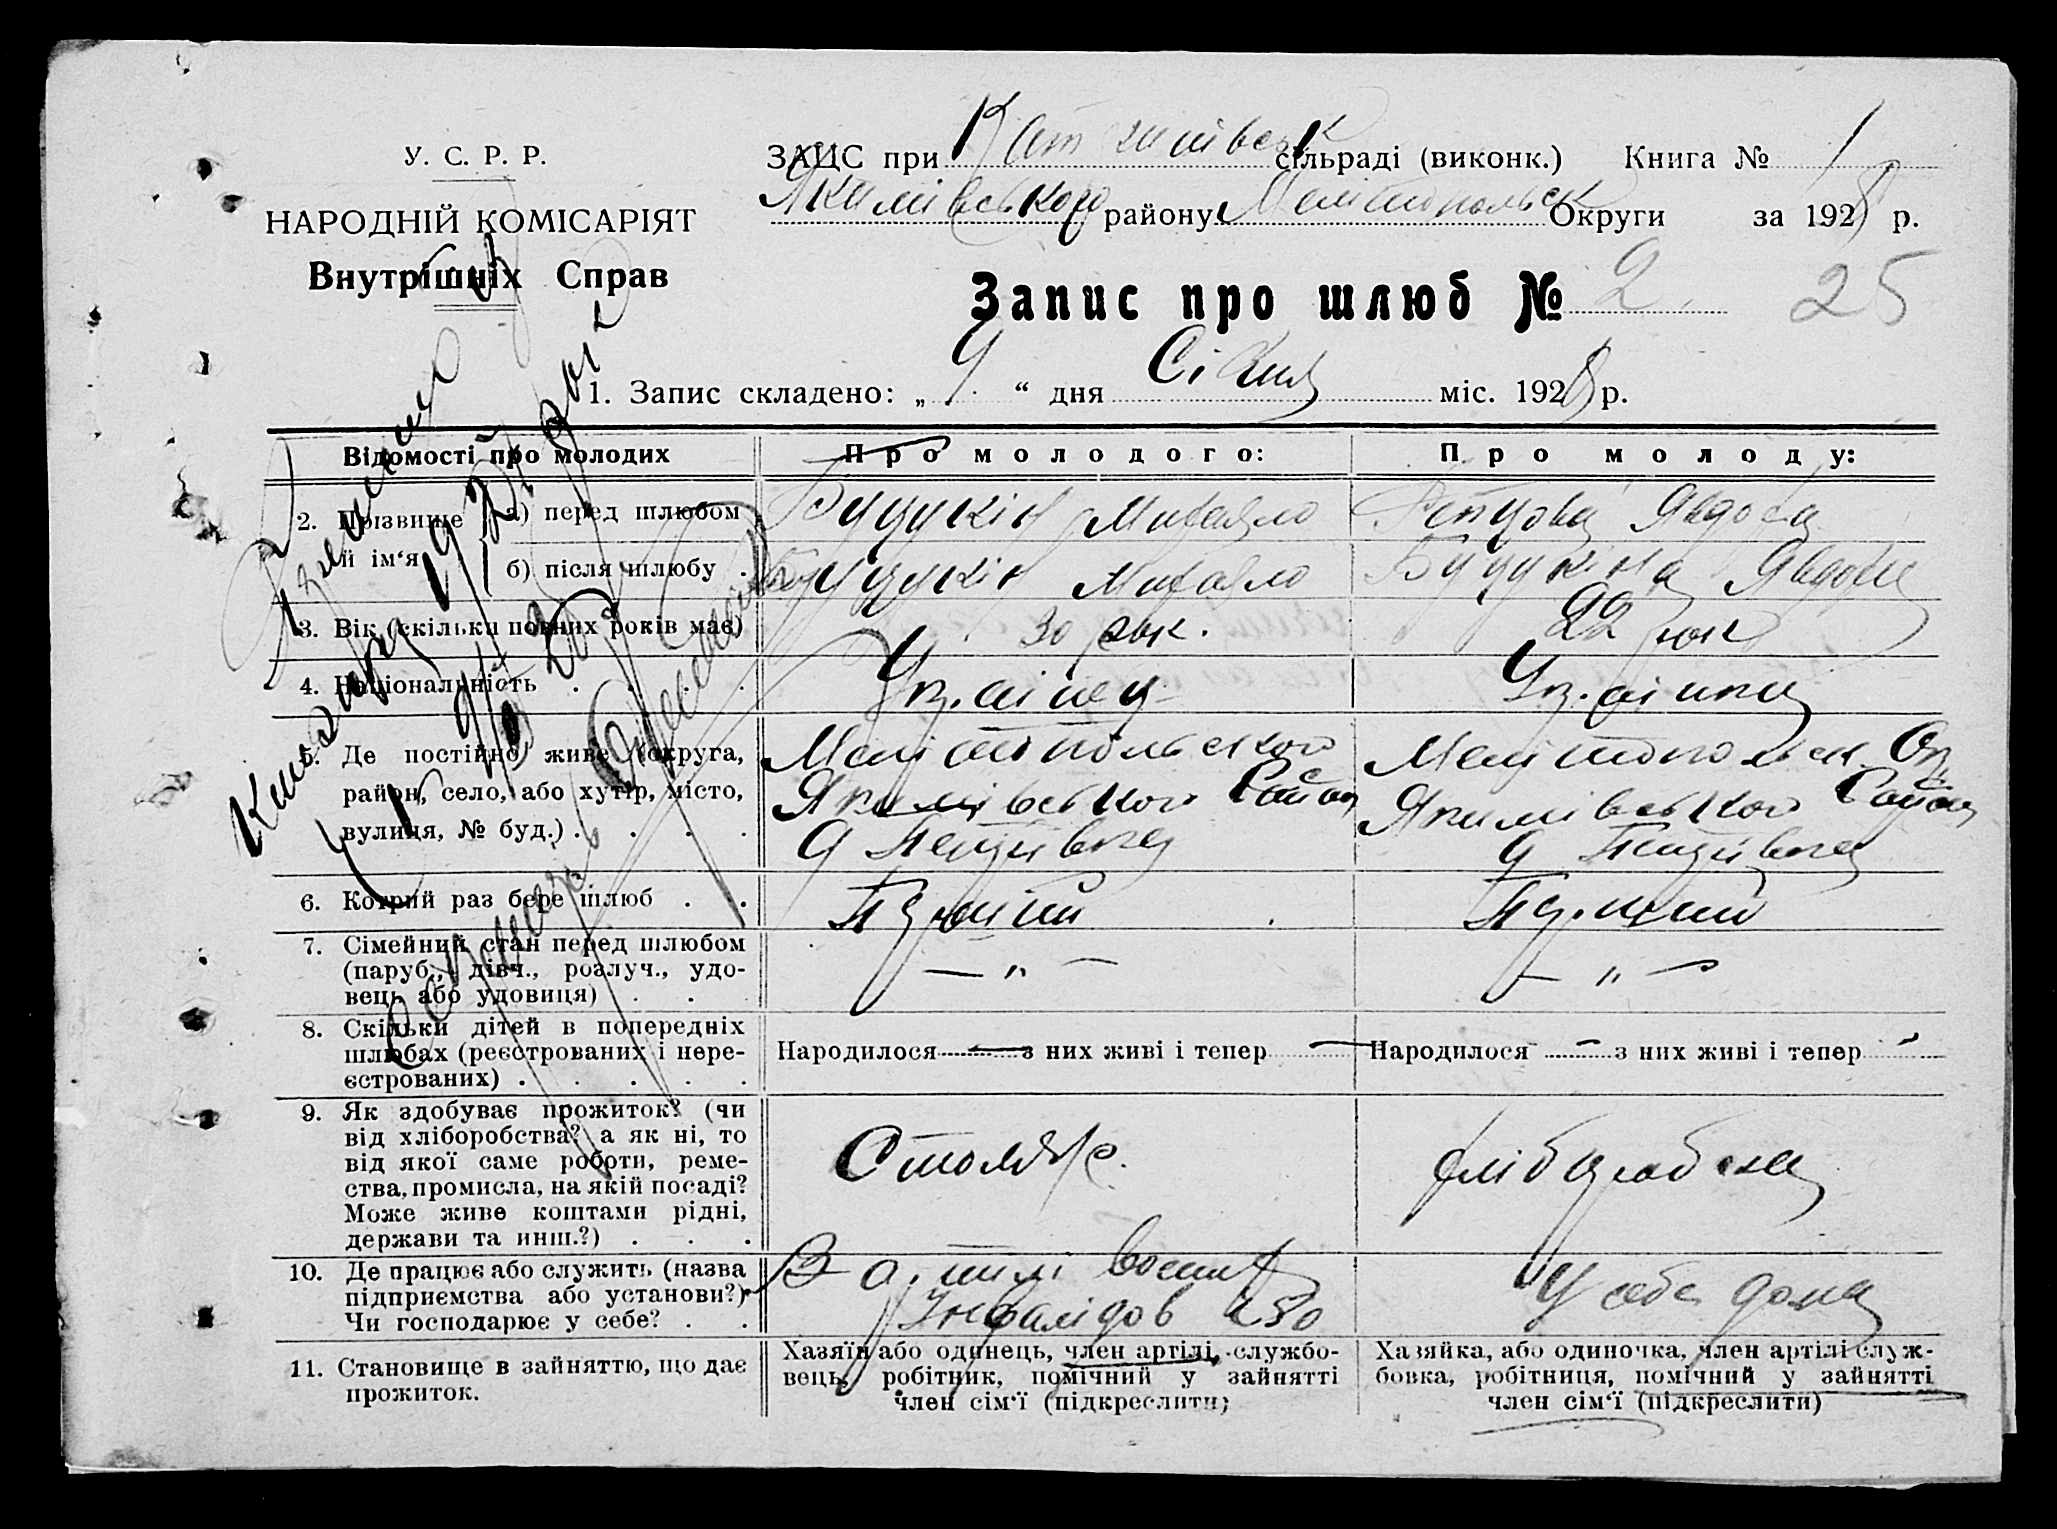 У. С. Р. Р.
НАРОДНІЙ КОМІСАРІЯТ
Внутрішніх Справ
ЗАЦС при сільраді (виконк.) Книга № 1
Якимівського району Мелітопольск Округи за 1928 р.
Запис про шлюб № 2
25
1. Запис складено: „ 9 “ дня Січня міс. 1928 р.
Відомості про молодих
Про молодого:
Про молоду:
2. Прізвище й ім‘я
а) перед шлюбом
Буцукін Михайло
Явдоха
б) після шлюбу
Буцукін Михайло
Буцукіна Явдоха
3. Вік (скільки повних років має)
30 рок.
22 рок
4. Національність
Українец
Українка
5. Де постійно живе (округа,
район, село, або хутір, місто,
вулиця, № буд.)
Мелітопольского
Якимівського Район
Мелітопольск. Окр
Якимівського Район
6. Котрий раз бере шлюб
Перший
Перший
7. Сімейний стан перед шлюбом
(паруб., дівч., розлуч., удо-
вець або удовиця)
— „ —
— „ —
8. Скільки дітей в попередніх
шлюбах (реєстрованих і нере-
єстрованих)
Народилося — з них живі і тепер —
Народилося — з них живі і тепер —
9. Як здобуває прожиток? (чи
від хліборобства? а як ні, то
від якої саме роботи, реме-
ства, промисла, на якій посаді?
Може живе коштами рідні,
держави та инш.?)
Столяр.
10. Де працює або служить (назва
підприємства або установи?)
Чи господарює у себе?
Інвалідов
У себе дома
11. Становище в зайняттю, що дає
прожиток.
Хазяїн або одинець, член артілі, службо-
вець, робітник, помічний у зайнятті
член сім‘ї (підкреслити)
Хазяйка, або одиночка, член артілі служ-
бовка, робітниця, помічний у зайнятті
член сім‘ї (підкреслити)